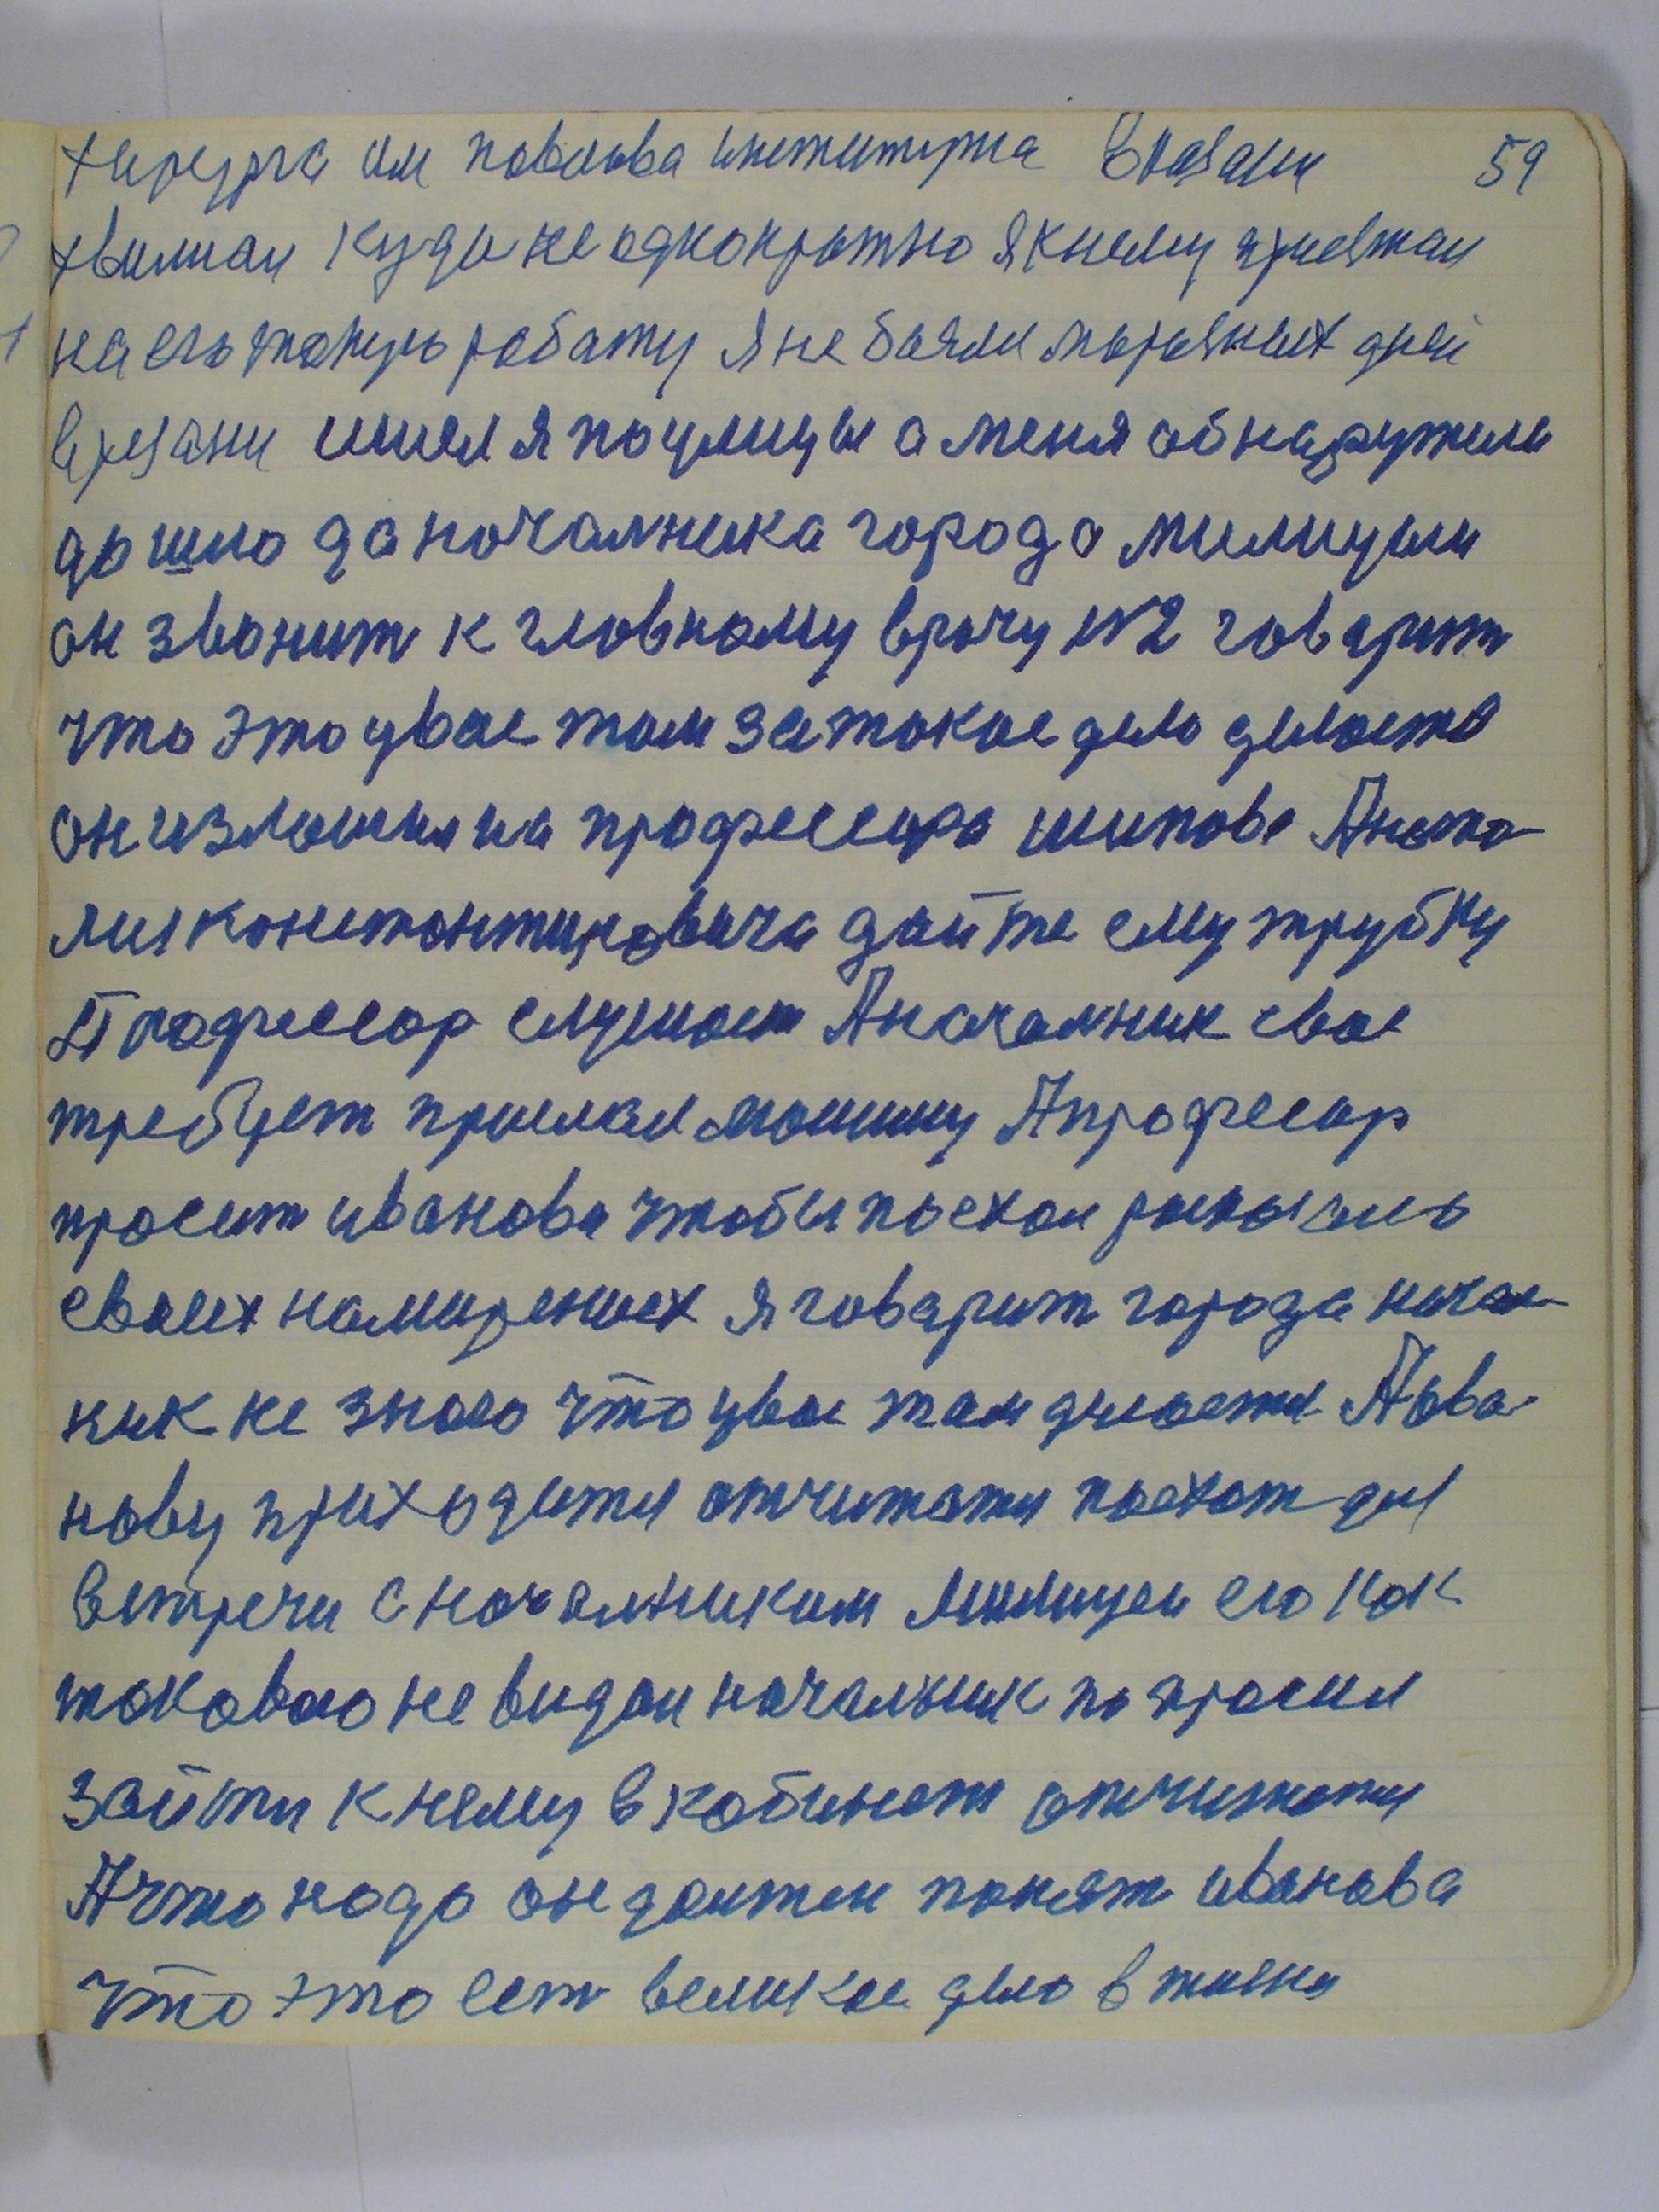 хирурга им павлова института врязани 59
хвилман куда не однократно я кнему приезжал
на его такую работу я не боялся морозных дней
врязани шиел я по улицы а меня обнаружила
дошло до начальника города милицыи
он звонит к главному врачу №2 говарит
что это увас там за такое дело делается
он изложил на профессора шипова Анато
лия константиновича дайте ему трубку
Профессор слушает А начальник свое
требует прислал машину А професор
просит иванова чтобы поехал
своих намирениех я говарит города начал
ник не знаю что увас там делается А ива
нову приходится отчитатся поехат для
встречи с начальником милицеи его как
таковаго не видал начальник попросил
зайти к нему в кабинет отчитатся
А что надо он должен понят иванова
что это ест великое дело в жизни